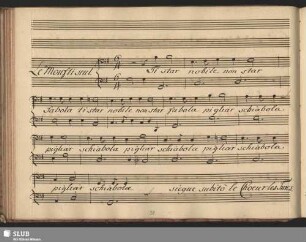 Le Mouffti seul
Ti star nobile non star
fabola ti star nobile non star fabola pigliar schiabola
pigliar schiabola pigliar schiabola pigliar schiabola
pigliar schiabola siegue subito le Choeur
SLUB